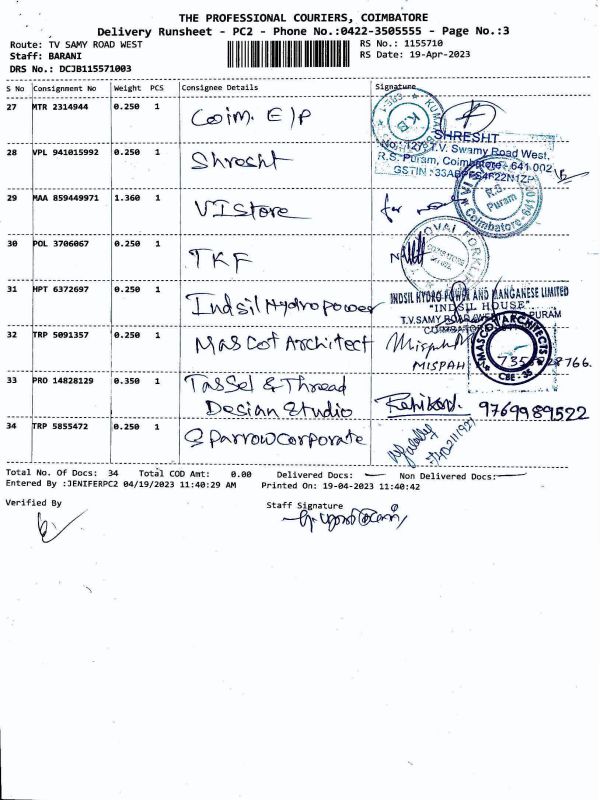 THE PROFESSIONAL COURIERS, COIMBATORE
Delivery Runsheet - PC2 - Phone No.:0422-3505555 - Page No.:3
Route: TV SAMY ROAD WEST RS No.: 1155710
Staff: BARANI RS Date: 19-Apr-2023
DRS No.: DCJB115571003
S No Consignment No Weight PCS Consignee Details Signature
27 MTR 2314944 0.250 1 Coim. E/P
SHRESHT
No: 127, T.V. Swamy Road West,
28 VPL 941015992 0.250 1 Shresht R.S. Puram, Coimbatore - 641 002
GSTIN :
29 MAA 859449971 1.360 1 VIStore for
R.S. Puram
Coimbatore - 641
30 POL 3706067 0.250 1 TKF
31 HPT 6372697 0.250 1 Indsil Hydropower INDSIL HYDRO POWER AND MANGANESE LIMITED
"INDSIL HOUSE"
T.V.SAMY PURAM
32 TRP 5091357 0.250 1 Mascot Architect MASCOT ARCHITECTS
MISPAH
CBE - 35
33 PRO 14828129 0.350 1 Tassel & Thread
Design Studio 9769989522
34 TRP 5855472 0.250 1 Sparrow corporate
Total No. Of Docs: 34 Total COD Amt: 0.00 Delivered Docs: Non Delivered Docs:
Entered By :JENIFERPC2 04/19/2023 11:40:29 AM Printed On: 19-04-2023 11:40:42
Verified By Staff Signature